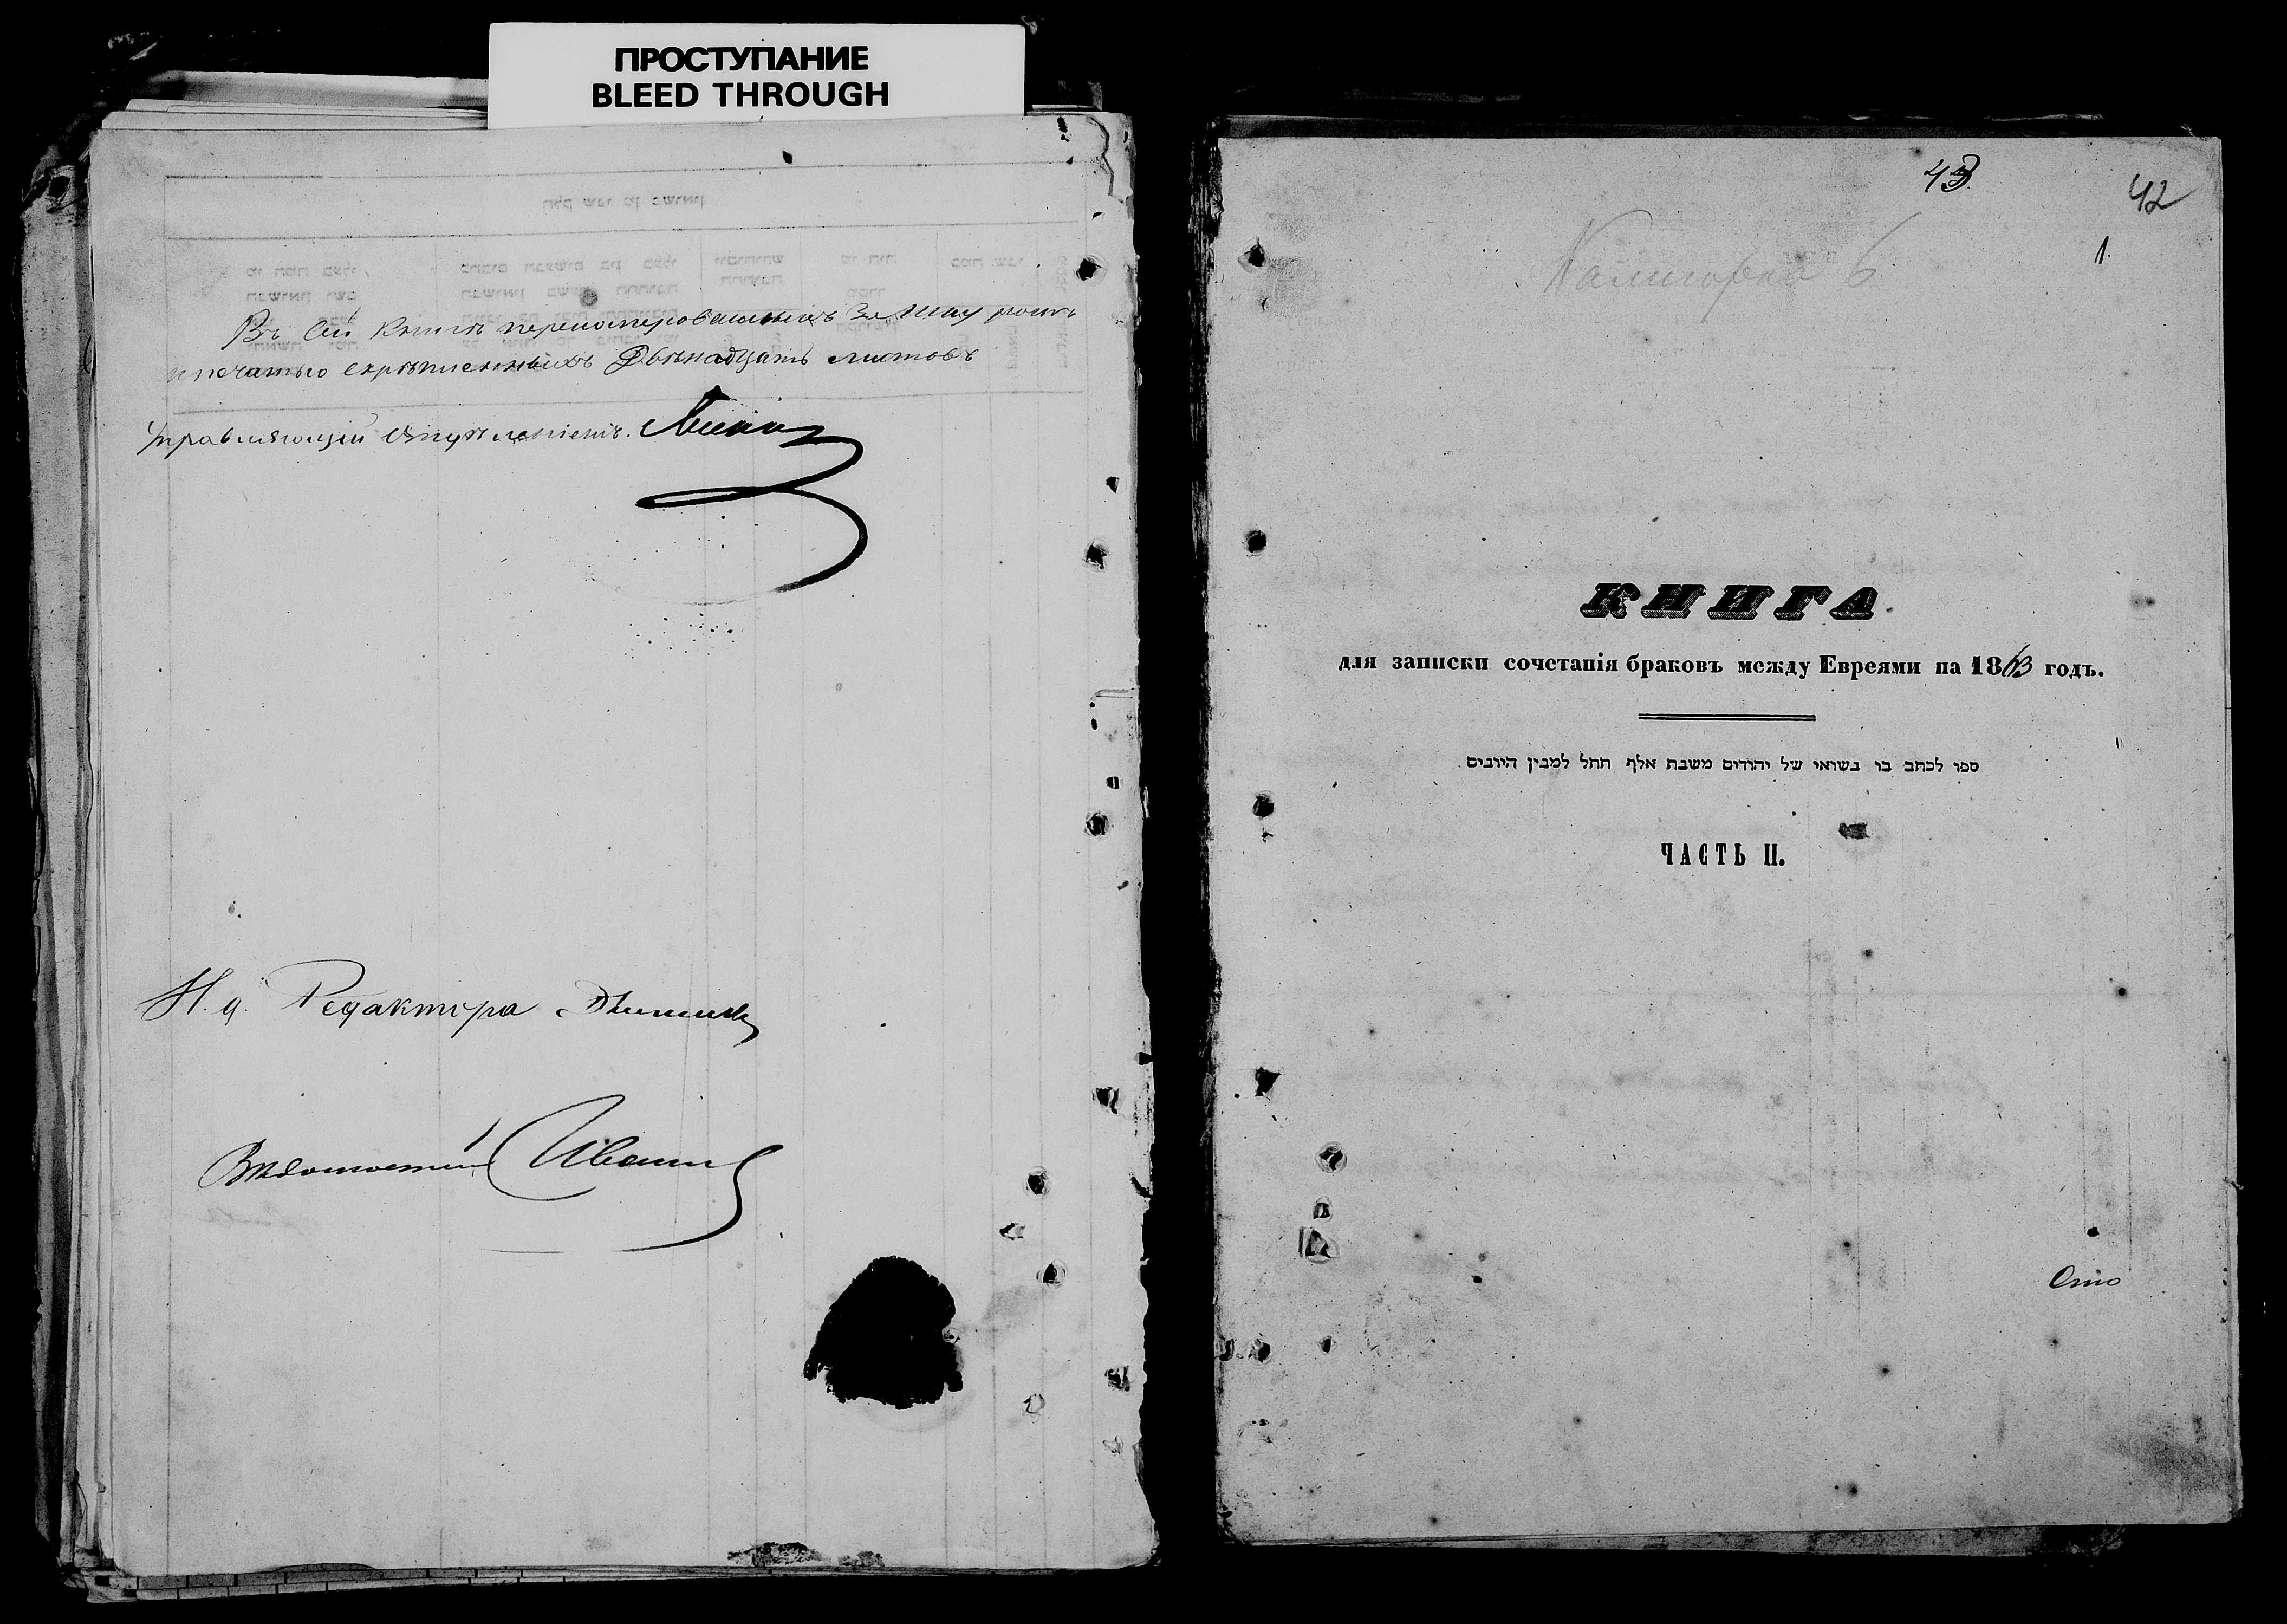 ПРОСТУПАНИЕ
BLEED THROUGH
Въ сей книгѣ перенумерованныхъ за шнуромъ
и печатью скрѣпленныхъ Двѣнадцать листовъ
Управляющій Отдѣленіемъ.
И. д. Редактора
43
42
1.
6
КНИГА
для записки сочетанія браковъ между Евреями на 1863 годъ.
ספר לכתב בו נשואי של יהודים משנת אלף תתל למנין היונים
ЧАСТЬ II.